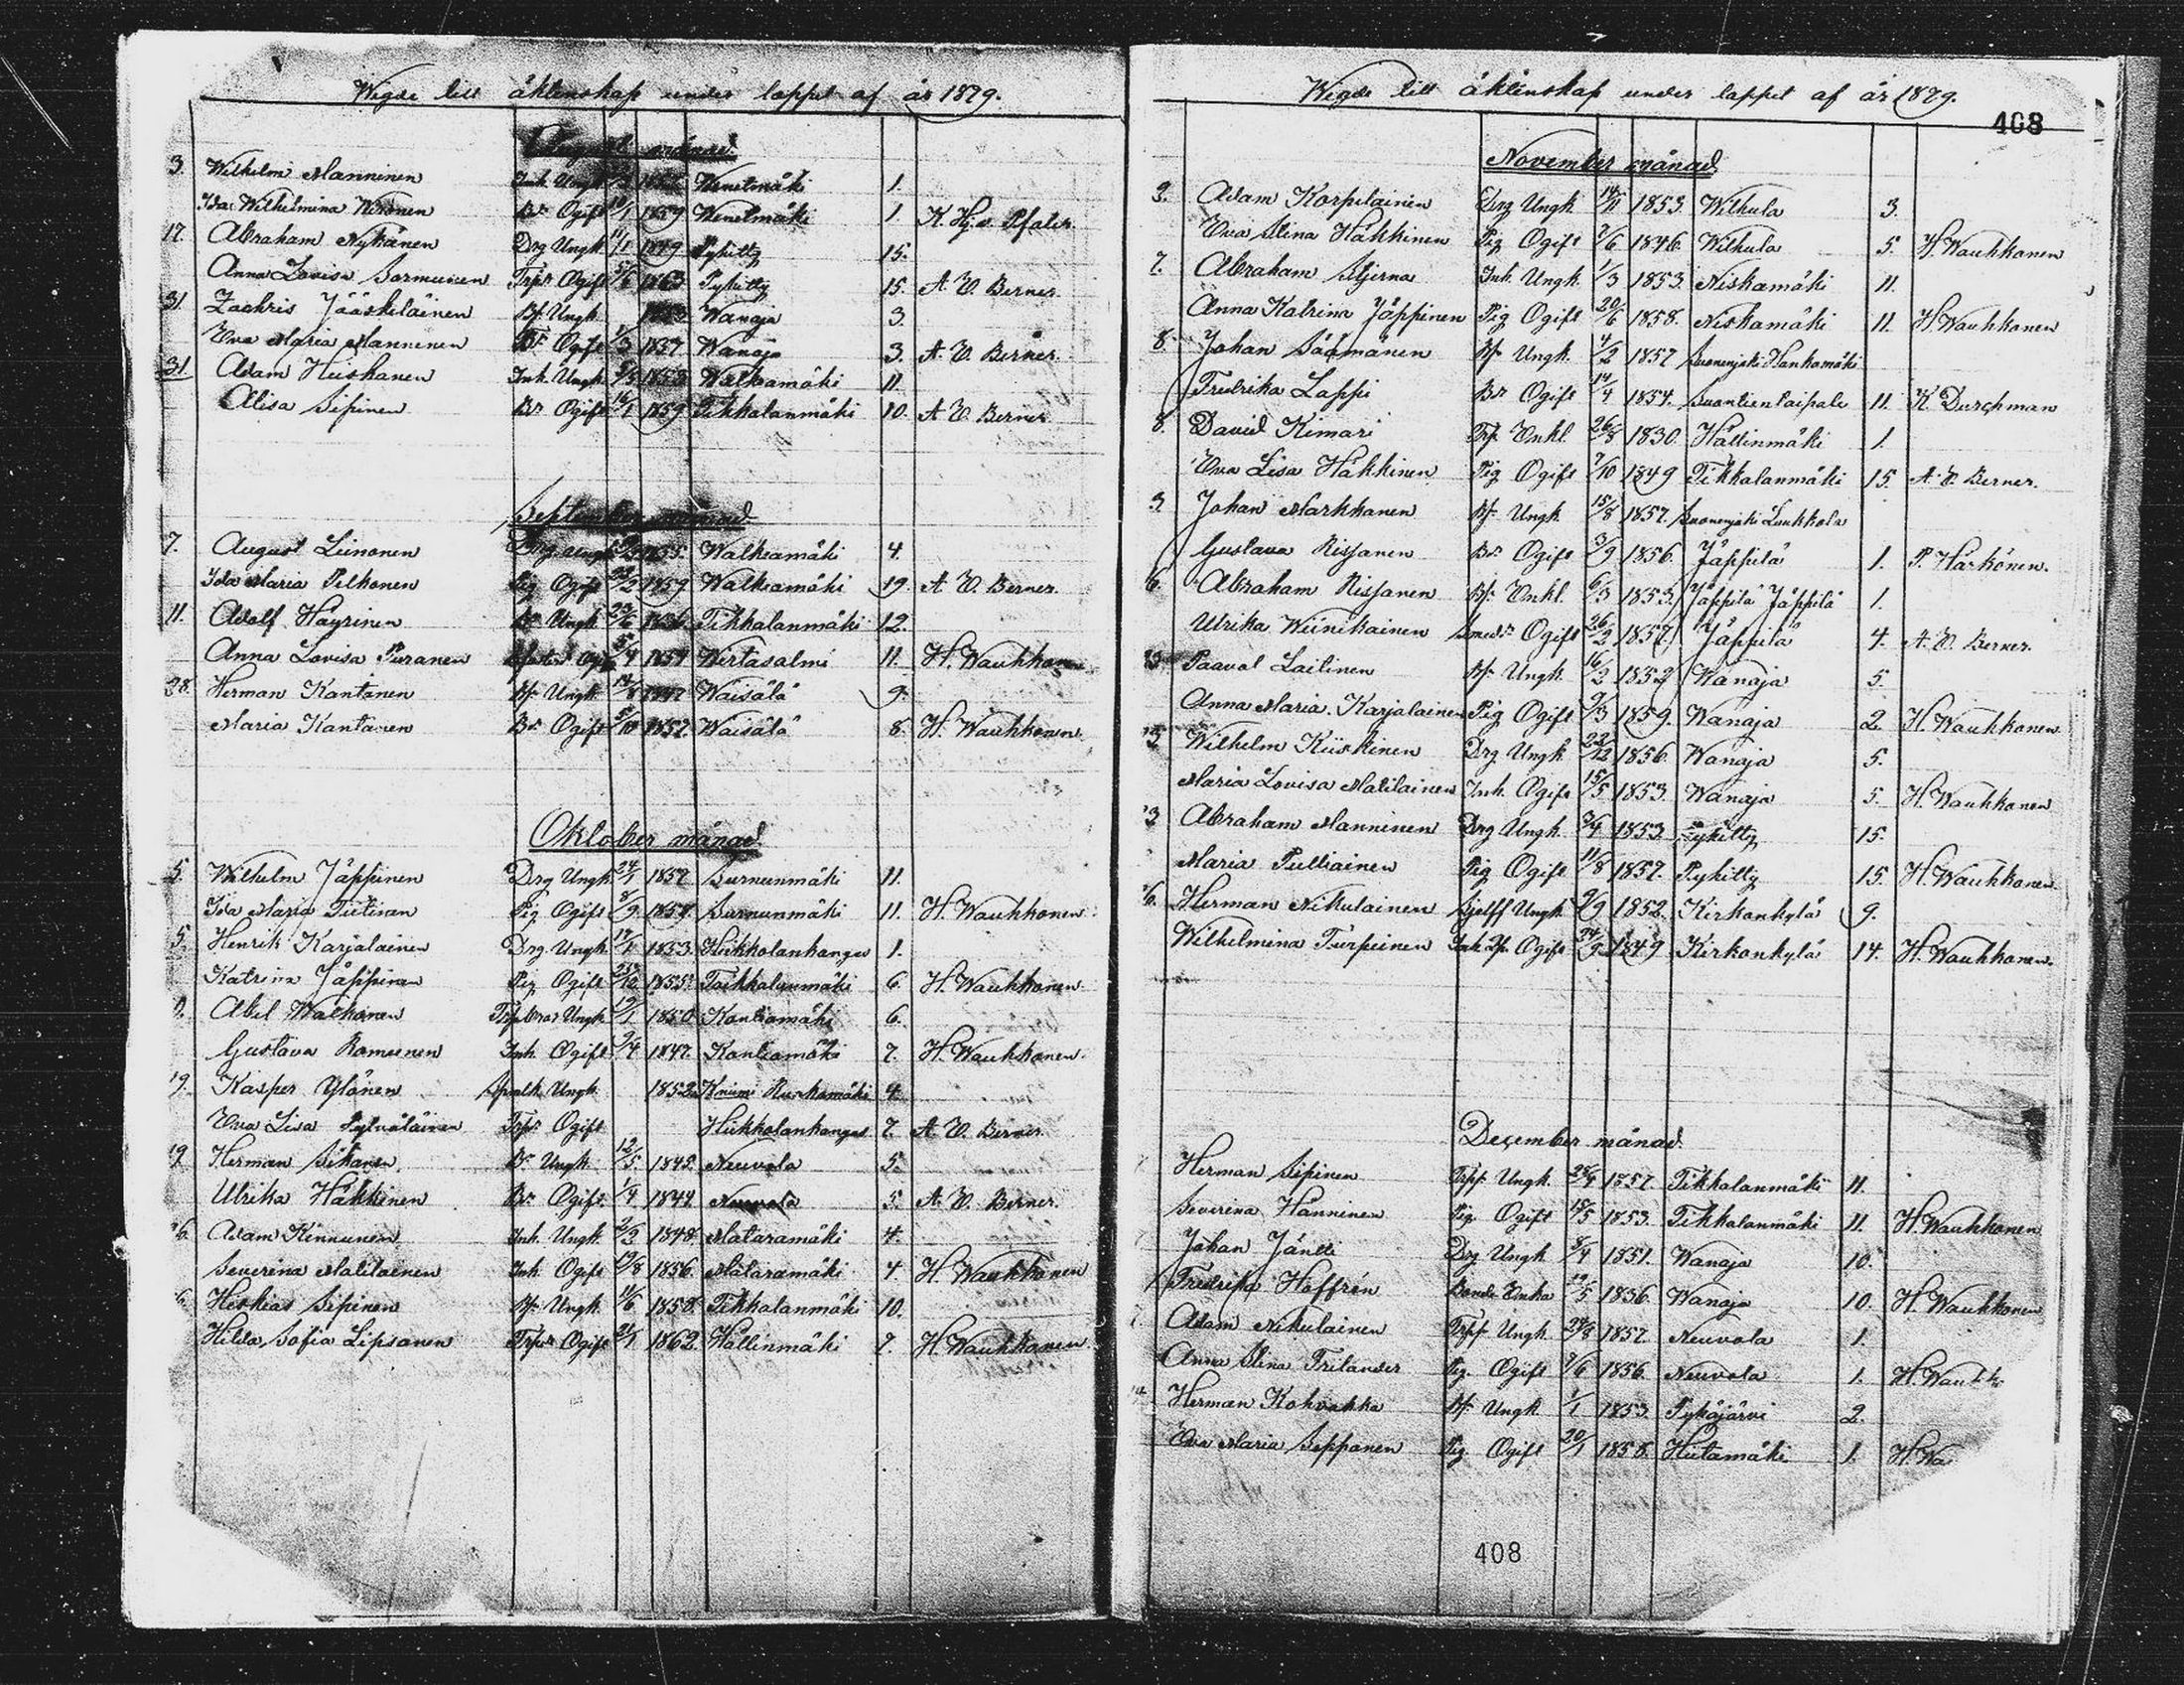 Wigde till äktenskap under loppet af år 1879.
Augusti månad.
3. Wilhelm Manninen Inh. Ungk. Wenetmäki 1.
Ida Wilhelmina Wironen Bdr Ogift 10/1 1859 Wenetmäki 1. K. Hj. v. Pfaler.
17. Abraham Nykänen Drg Ungk 11/1 1849 Pykitty 15.
Anna Lovisa Sormunen Trpdr Ogift 1863 Pykitty 15. A. W. Berner.
31. Zachris Jääskeläinen Bf. Ungk Wanaja 3.
Eva Maria Manninen Bdr Ogift 1/3 1837 Wanaja 3. A. W. Berner.
31. Adam Huskanen Inh. Ungk. Walkeamäki 11.
Alisa Sipinen Bdr Ogift 16/1 1859 Tikkalanmäki 10. A. W. Berner.
September månad.
7. August Liinonen Drg Ungk Walkeamäki 4.
Ida Maria Pelkonen Pig Ogift 1859 Walkeamäki 19. A. W. Berner.
11. Adolf Häyrinen Ungk 23/6 Tikkalanmäki 12.
Anna Lovisa Puranen Ogift 1857 Wirtasalmi 11. H. Wauhkonen
28. Herman Kantanen Bf. Ungk Waisälä 9.
Maria Kantanen Bdr Ogift 5/10 1852 Waisälä 8. H. Wauhkonen.
Oktober månad.
5. Wilhelm Jäppinen Drg Ungk. 24/1 1857 Surnunmäki 11.
Ida Maria Tiitinen Pig Ogift 8/9 1857. Surnunmäki 11. H. Wauhkonen.
5. Henrik Karjalainen Drg. Ungk 1853. Hiikkolanhangas 1.
Katrina Jäppinen Pig Ogift 1855. Toikkalanmäki 6. H. Wauhkonen
Abel Walkonen Ungk 19/1 1850 Kontiomäki 6.
Gustava Romunen Inh Ogift 9/4 1847. Kontiomäki 7. H. Wauhkonen.
19. Kasper Ylönen Ungk. 1852 4.
Eva Lisa Sylväläinen Trpdr Ogift Hiikkolanhangas 7. A. W. Berner.
19. Herman Sikanen Ungk. 12/5 1845. Neuvola 5.
Ulrika Häkkinen Bdr Ogift. 1/4 1844. Neuvola 5. A. W. Berner.
26. Adam Kinnunen Inh. Ungk. 2/2 1848. Mataramäki 4.
Severina Matilainen Inh. Ogift 19/8 1856. Mataramäki 4. H. Wauhkonen
Heskias Sipinen Bf. Ungk. 11/6 1858. Tikkalanmäki 10.
Hilda Sofia Lipsanen Trpdr Ogift 21/1 1862. Hällinmäki 7. H. Wauhkonen.
Wigde till äktenskap under loppet af år 1879.
408
November månad.
2. Adam Korpilainen Drg Ungk 14/11 1853. Wilhula 3.
Eva Stina Häkkinen Pig Ogift 2/6 1846. Wilhula 5. H. Wauhkonen
2. Abraham Stjerna Inh. Ungk. 1/3 1853. Niskamäki 11.
Anna Katrina Jäppinen Pig Ogift 20/6 1858. Niskamäki 11. H. Wauhkonen
8. Johan Säämänen Bf. Ungk. 4/2 1857 Suonenjoki Hankamäki
Fredrika Lappi Bdr Ogift 14/4 1854. Suontientaipale 11. K. Durchman
8. David Kimari Trp. Enkl. 26/8 1830. Hällinmäki 1.
Eva Lisa Häkkinen Pig Ogift 7/10 1849 Tikkalanmäki 15. A. W. Berner.
9. Johan Markkanen Bf. Ungk 15/8 1857. Suonenjoki Luukkola
Gustava Rissanen Bdr Ogift 3/9 1856. Jäppilä 1. P. Härkönen.
16. Abraham Rissanen Bf. Enkl. 6/3 1853. Jäppilä Jäppilä 1.
Ulrika Wiinikainen Smeddr Ogift 26/2 1857 Jäppilä 4. A. W. Berner.
23. Paavol Laitinen Bf. Ungk 16/2 1852 Wanaja 5.
Anna Maria Karjalainen Pig Ogift 9/3 1859. Wanaja 2. H. Wauhkonen
23. Wilhelm Kiiskinen Drg Ungk. 22/12 1856. Wanaja 5.
Maria Lovisa Matilainen Inh. Ogift 15/5 1853. Wanaja 5. H. Wauhkonen
23. Abraham Manninen Drg Ungk. 3/4 1853 Pykitty 15.
Maria Pulliainen Pig Ogift 11/8 1857. Pykitty 15. H. Wauhkonen.
Herman Nikulainen Sjelff Ungk 9/9 1852. Kirkonkylä 9.
Wilhelmina Turpeinen Ogift 24/9 1849 Kirkonkylä 14. H. Wauhkonen.
December månad.
Herman Sipinen Trpf Ungk. 1857. Tikkalanmäki 11.
Severina Hänninen Pig. Ogift 15/5 1853. Tikkalanmäki 11. H. Wauhkonen
Johan Jäntti Drg Ungk 8/4 1851. Wanaja 10.
Fredrika Hoffrén Bonde Enka 19/5 1836. Wanaja 10. H. Wauhkonen
Adam Nikulainen Trpf Ungk. 1857. Neuvola 1.
Anna Stina Frilander Pig. Ogift 2/6 1856. Neuvola 1. H. Wauhk
Herman Kohvakka Bf. Ungk 1/1 1853. Pyhäjärvi 2.
Eva Maria Seppänen Pig. Ogift 20/1 1858. Hiitamäki 1. H. Wa
408